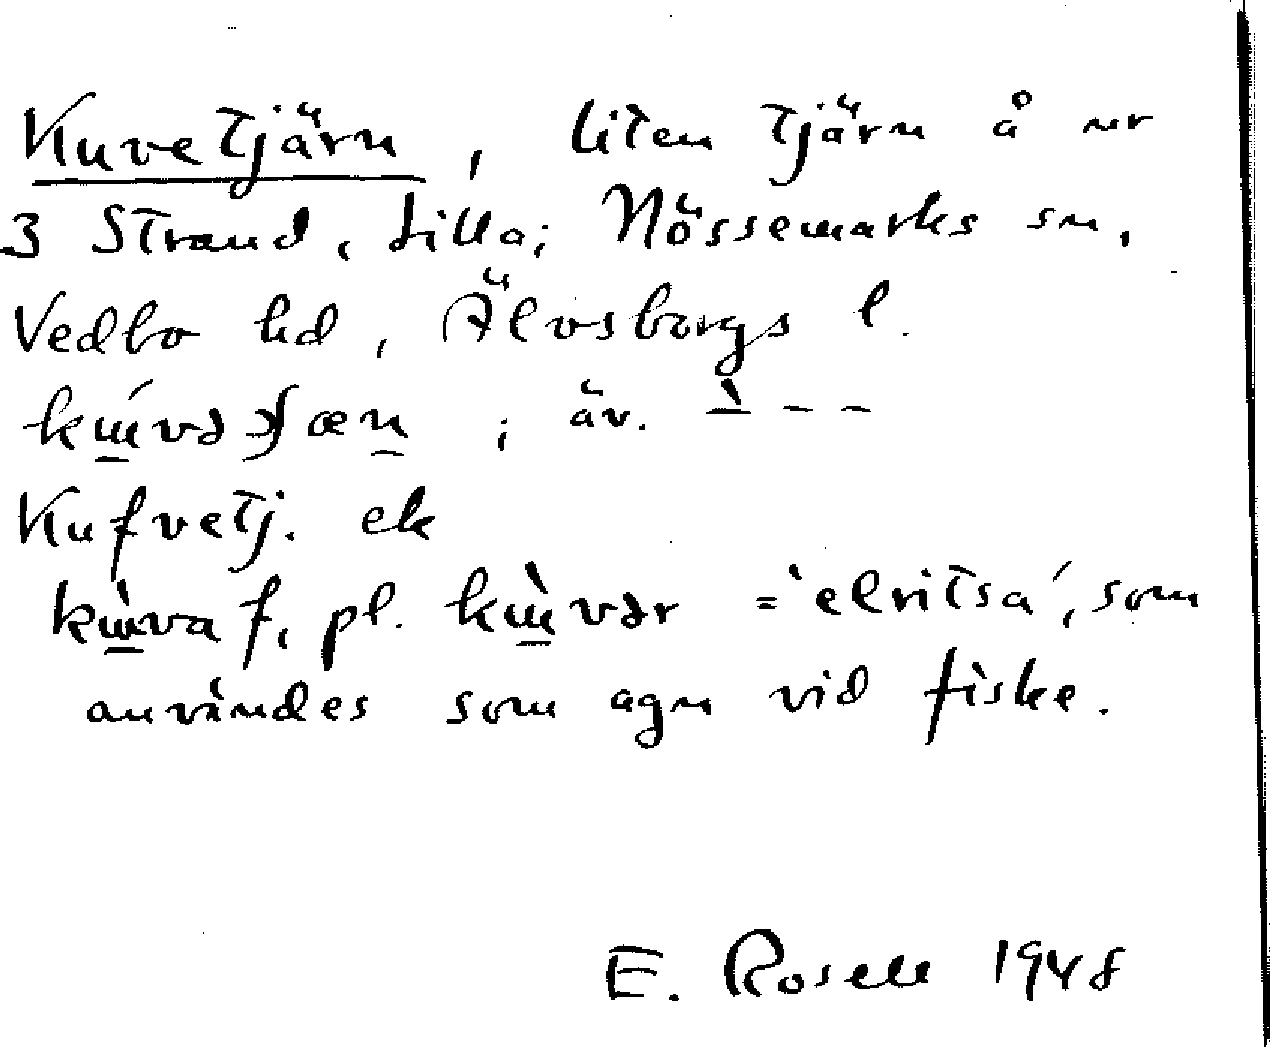 Kuvetjärn, liten tjärn å nr
3 Strand, Lilla; Nössemarks sn,
Vedbo hd, Älvsborgs l.
; äv. ` - - -
Kufvetj. ek
f, pl. = 'elritsa', som
användes som agn vid fiske.
E. Rosell 1948